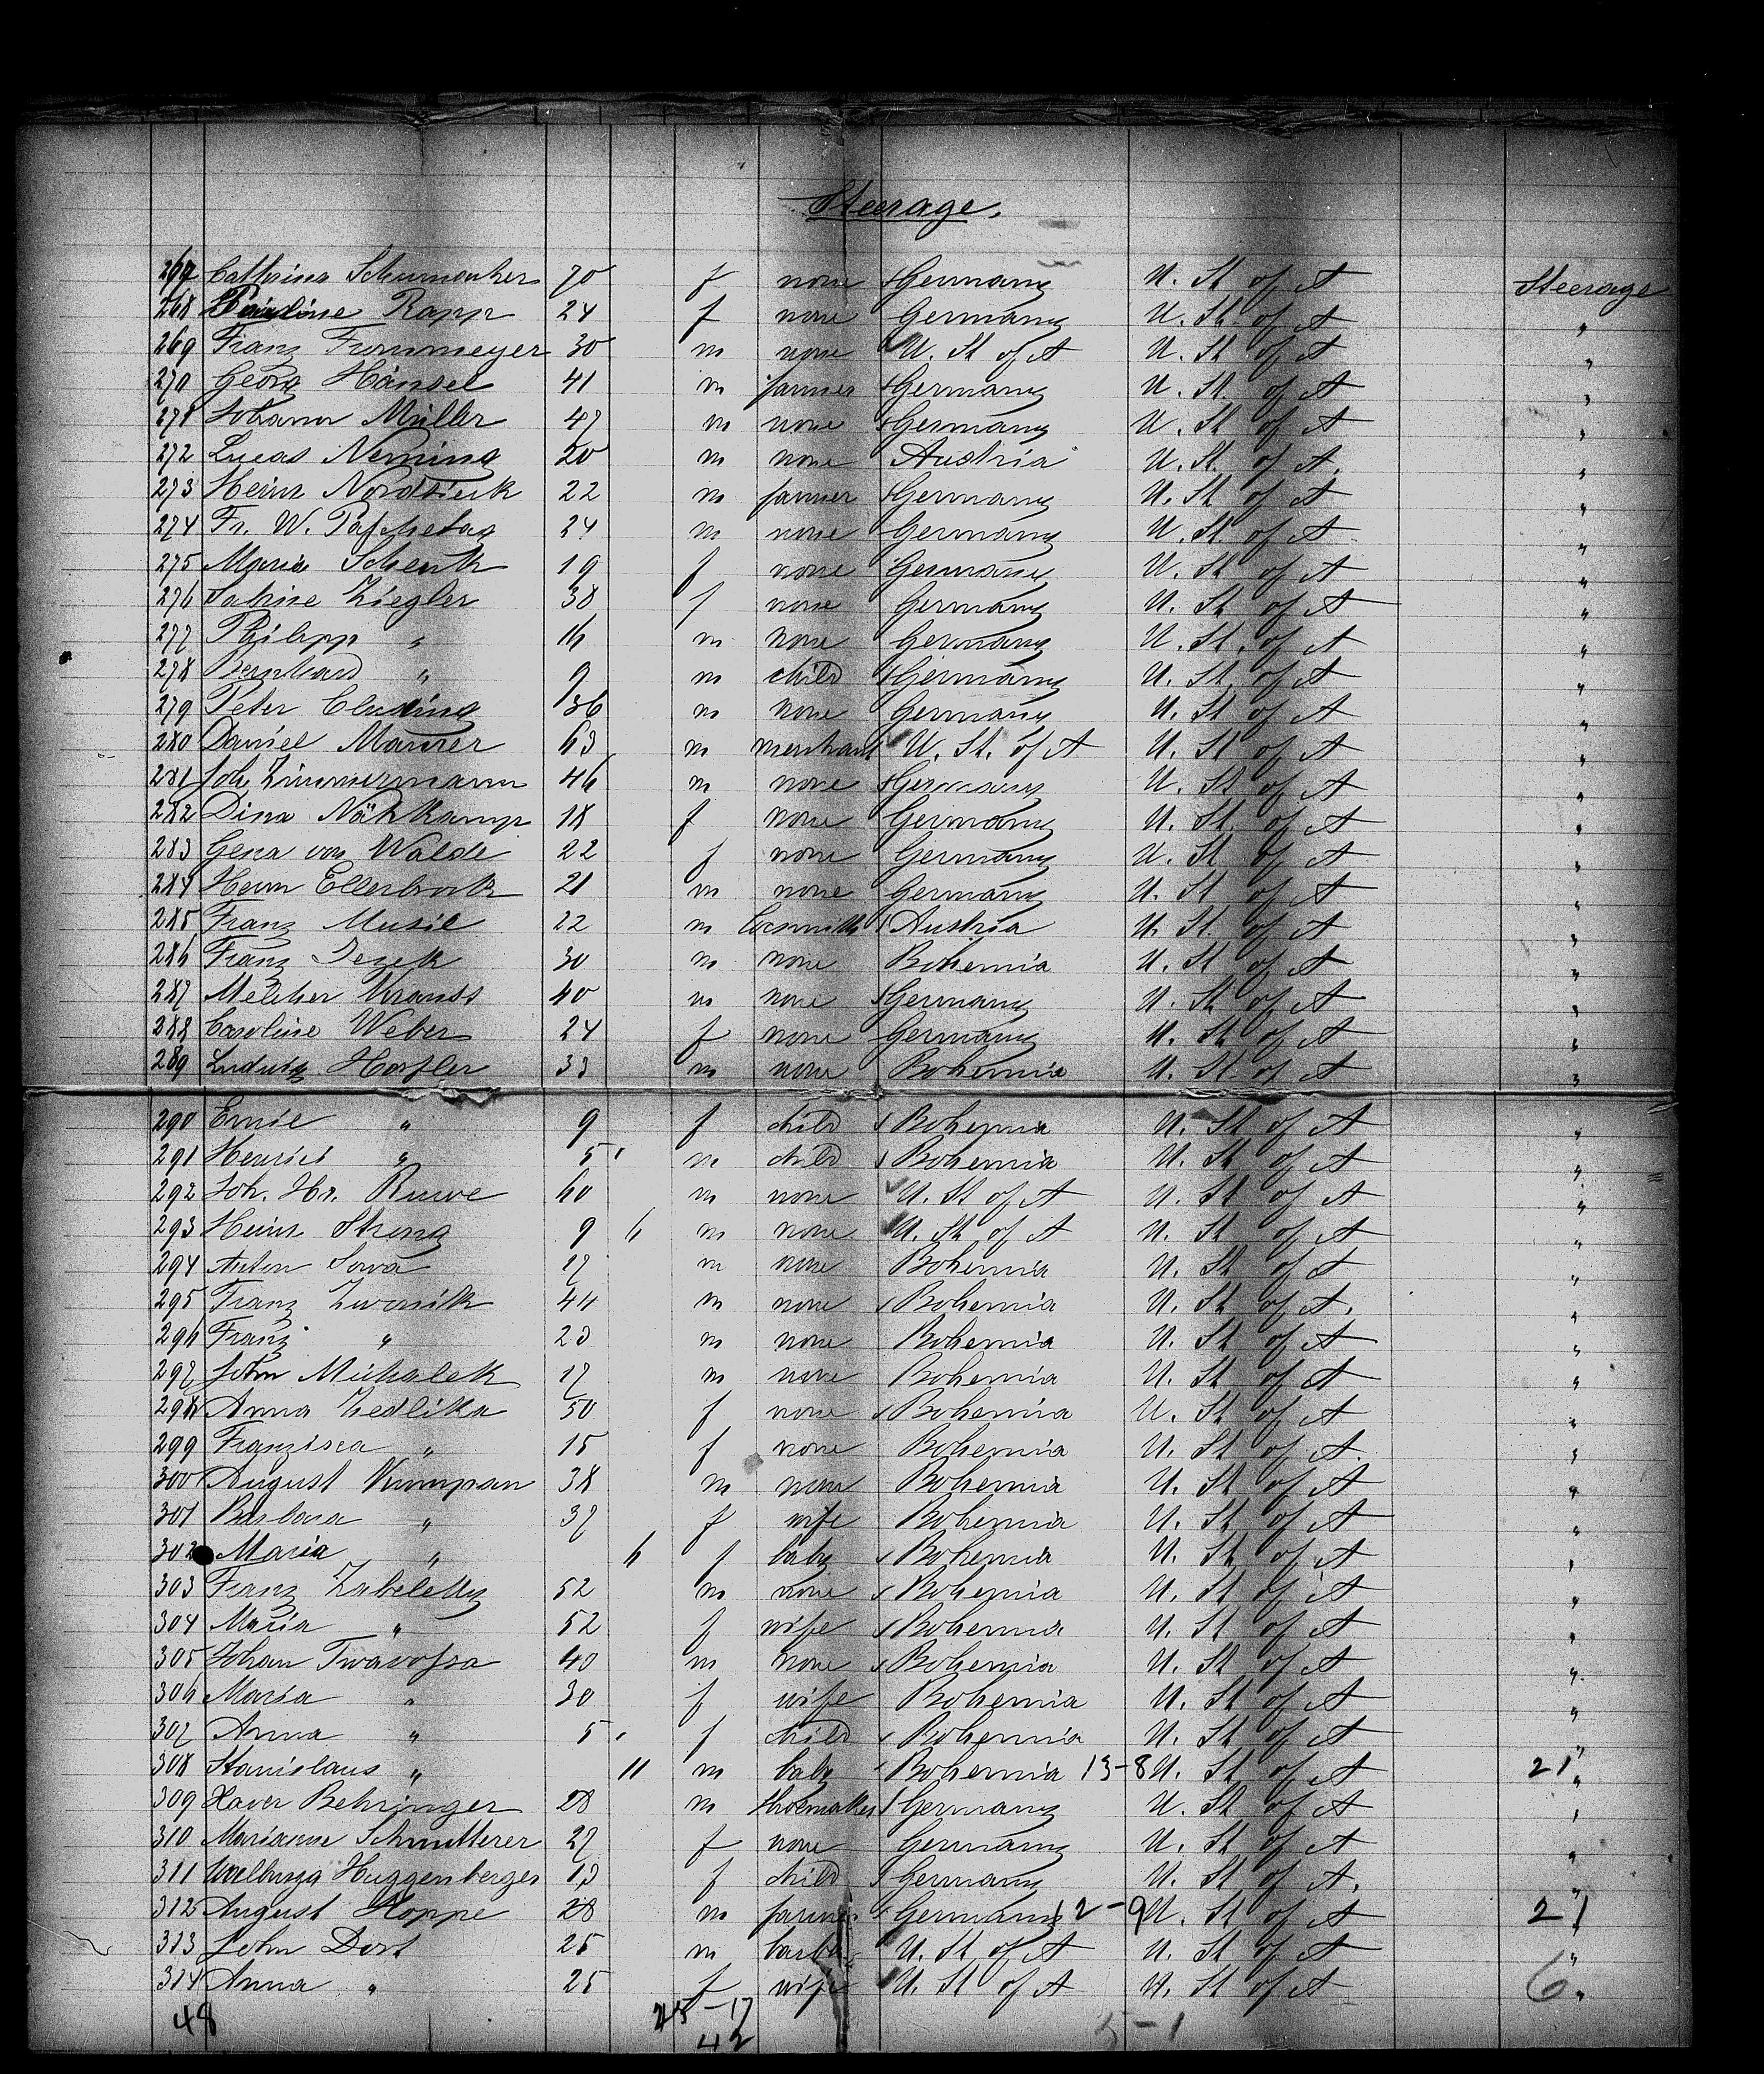 Steerage.
267 Cathrina Schumacher 70 f none Germany U. St of A Steerage
268 Pauline Rapp 24 f none Germany U. St. of A "
269 Franz Frommeyer 30 m none U. St of A U. St of A "
270 Georg Hänsel 41 m farmer Germany U. St. of A "
271 Johann Müller 47 m none Germany U. St of A "
272 Lucas Neming 20 m none Austria U. St. of A. "
273 Heinr Nordsiek 22 m farmer Germany U. St of A "
274 Fr. W. 24 m none Germany U. St of A "
275 Maria Schenk 19 f none Germany U. St of A "
276 Sabine Ziegler 38 f none Germany U. St of A "
277 Philipp " 16 m none Germany U. St. of A "
278 Bernhard " 9 m child Germany U. St of A "
279 Peter Cluding 36 m none Germany U. St of A "
280 Daniel Maurer 63 m merchant U. St. of A U. St of A "
281 Joh. Zimmermann 46 m none Germany U. St of A "
282 Dina Nähkamp 18 f none Germany U. St. of A "
283 Gesa von Walde 22 f none Germany U. St of A "
284 Herm Ellerbrock 21 m none Germany U. St of A "
285 Franz Musil 22 m Locsmith Austria U. St. of A "
286 Franz Jezek 30 m none Bohemia U. St of A "
287 Melcher Krauss 40 m none Germany U. St of A "
288 Caroline Weber 24 f none Germany U. St of A "
289 Ludwig Hoefler 33 m none Bohemia U. St of A "
290 Emil " 9 f child Bohemia U. St of A "
291 Heinrich " 5 m child Bohemia U. St of A "
292 Joh. Hr. Ruwe 60 m none U. St of A U. St of A "
293 Heinr Streng 9 6 m none U. St of A U. St of A "
294 Anton Sova 17 m none Bohemia U. St of A "
295 Franz Zworsik 44 m none Bohemia U. St of A. "
296 Franz " 23 m none Bohemia U. St of A "
297 John Michalek 17 m none Bohemia U. St of A "
298 Anna Zedlika 50 f none Bohemia U. St of A "
299 Franzisca " 15 f none Bohemia U. St of A "
300 August Kumpan 38 m none Bohemia U. St of A "
301 Barbara " 37 f wife Bohemia U. St of A "
302 Maria " 6 f baby Bohemia U. St of A "
303 Franz Zabelsky 52 m none Bohemia U. St of A "
304 Maria " 52 f wife Bohemia U. St of A "
305 Johan 40 m none Bohemia U. St of A "
306 Maria " 30 f wife Bohemia U. St of A "
307 Anna " 5 f child Bohemia U. St of A "
308 Stanislaus " 11 m baby Bohemia 13-8 U. St of A 21 "
309 Xaver Behringer 28 m shoemaker Germany U. St of A "
310 Marianne Schmitterer 27 f none Germany U. St of A "
311 Walburga Huggenberger 13 f child Germany U. St of A. "
312 August Hoppe 28 m farmer Germany 12-9 U. St of A 21 "
313 John Dort 25 m barber U. St of A U. St of A "
314 Anna " 25 f wife U. St of A U. St of A 6 "
48 25-17 5-1
42